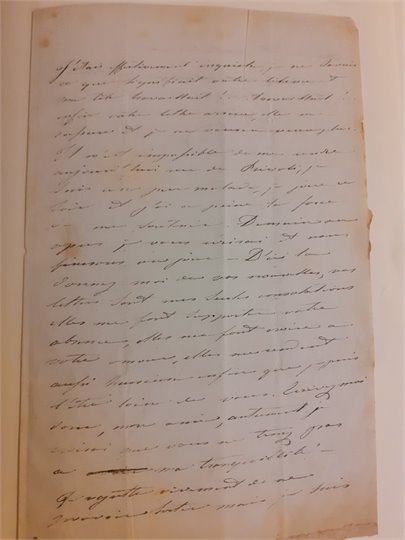 J'étais effectivement inquiète, je ne savais
ce que signifiait votre silence et
ma tête travaillait! travaillait!
enfin votre lettre arrive, elle me
rassure et je vous remercie
Il m'est impossible de me rendre
aujourd'hui rue de Rivoli, je
suis un peu malade, je garde le
et j'ai à peine la force
de me soutenir. Demain ou
après je vous écrirai et nous
un jour — D'ici là
donnez moi de vos nouvelles, vos
lettres sont mes seules consolations
elles me font supporter votre
absence, elles me font croire à
votre amour, elles me rendent
aussi heureuse enfin que je puis
l'être loin de vous. Ecrivez moi
donc, mon ami, autrement je
croirai que vous ne tenez pas
à ma tranquillité —
Je regrette vivement de ne
pouvoir sortir mais je suis